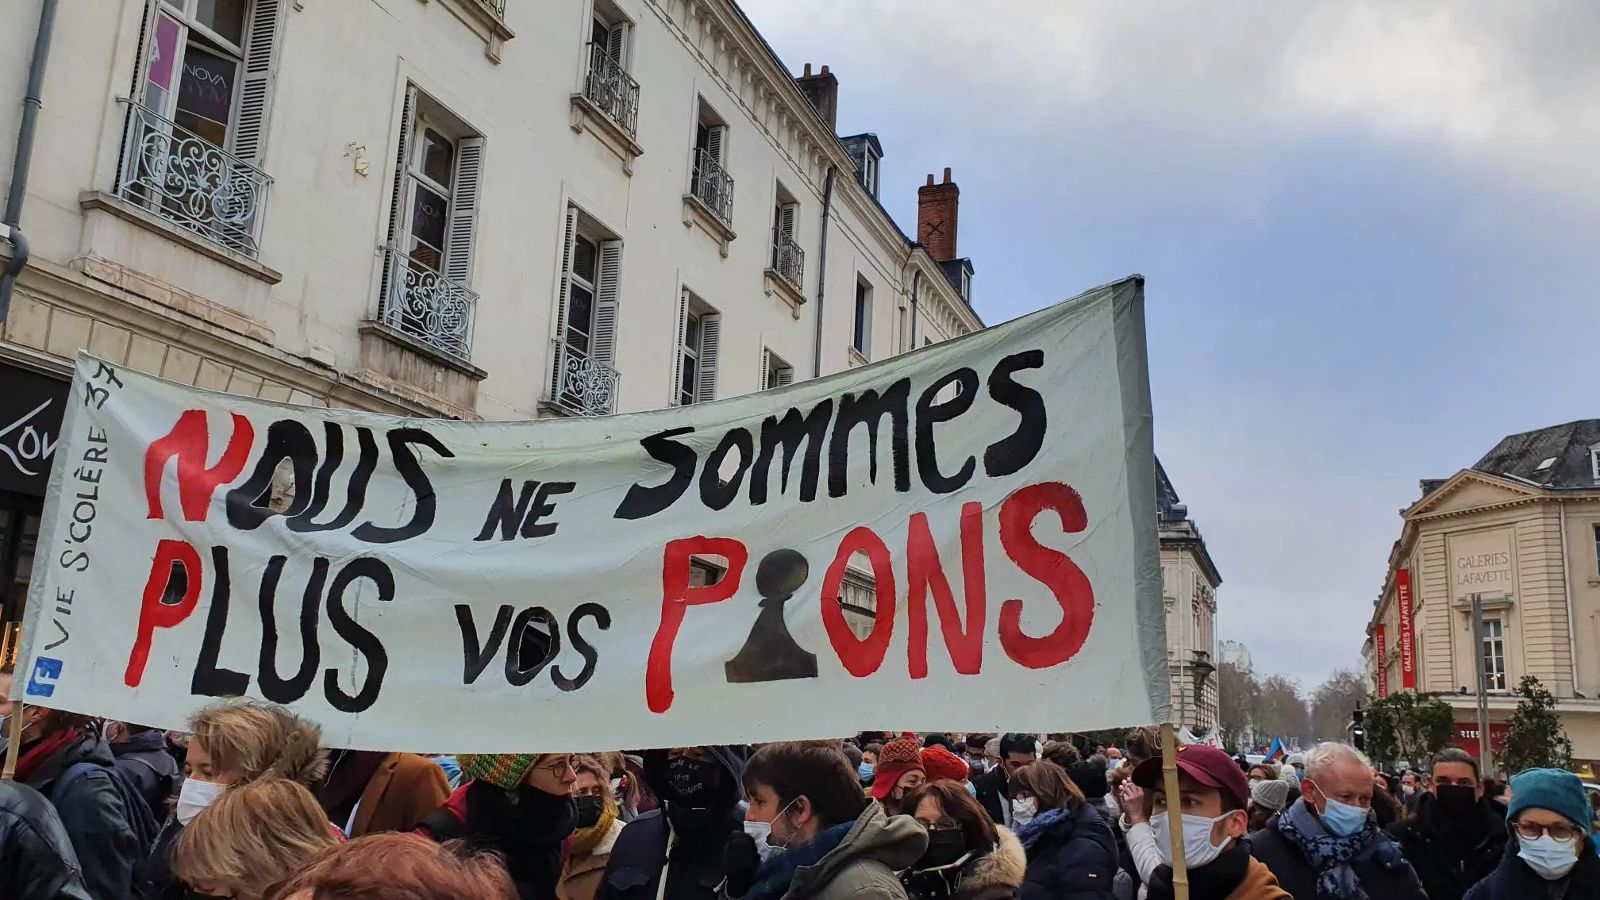 NOUS NE SOMMES
PLUS VOS PIONS
VIE S'COLÈRE 37
NOVA
GYM
NOVA
GALERIES
LAFAYETTE
GALERIES LAFAYETTE